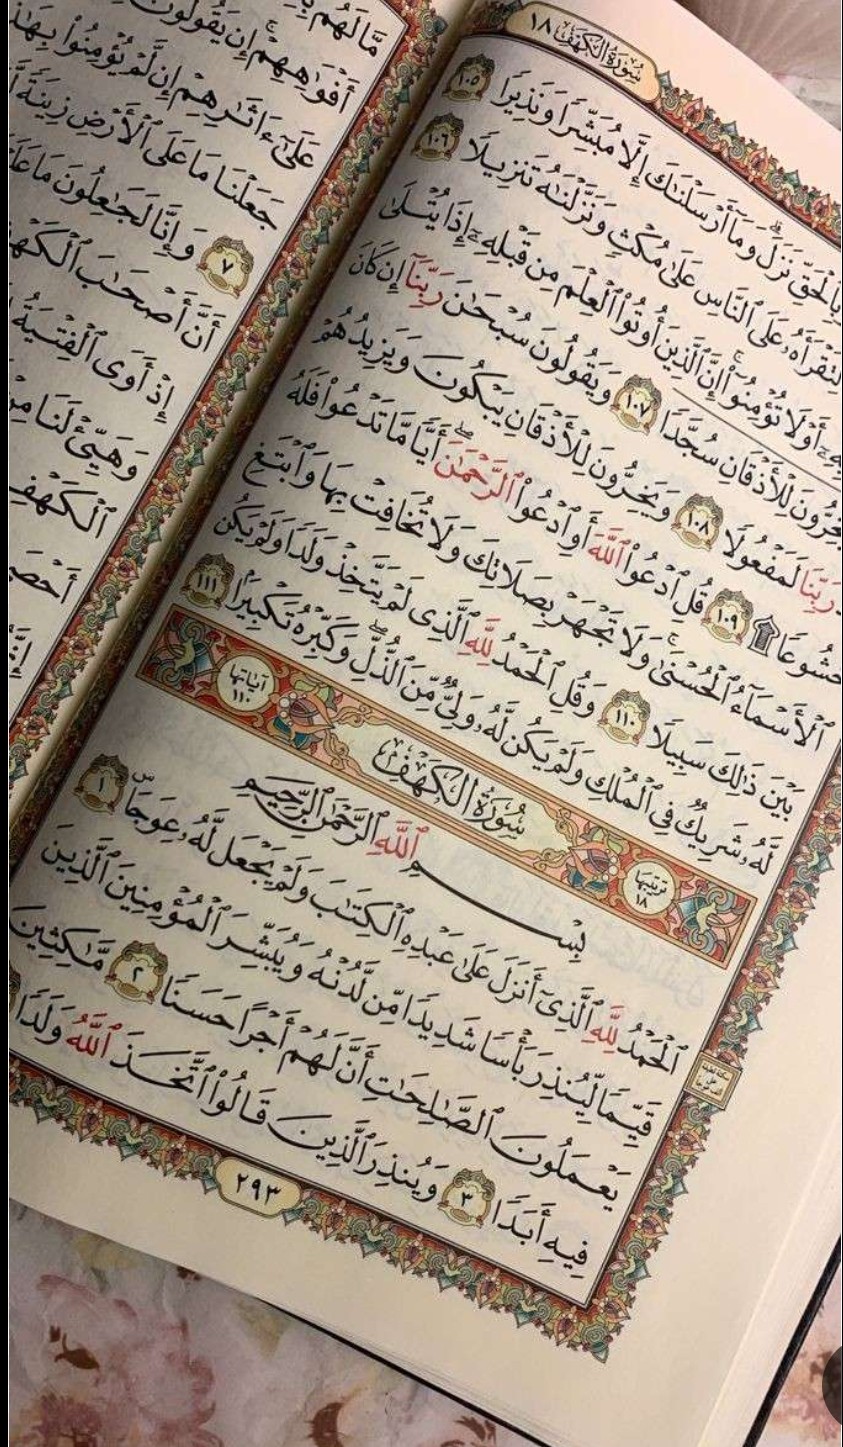 سُورَةُ الكَهْفِ ١٨
بِٱلْحَقِّ نَزَلَ ۗ وَمَآ أَرْسَلْنَـٰكَ إِلَّا مُبَشِّرًا وَنَذِيرًا ١٠٥
لِتَقْرَأَهُۥ عَلَى ٱلنَّاسِ عَلَىٰ مُكْثٍ وَنَزَّلْنَـٰهُ تَنزِيلًا ١٠٦
بِهِۦٓ أَوْ لَا تُؤْمِنُوٓا۟ ۚ إِنَّ ٱلَّذِينَ أُوتُوا۟ ٱلْعِلْمَ مِن قَبْلِهِۦٓ إِذَا يُتْلَىٰ
يَخِرُّونَ لِلْأَذْقَانِ سُجَّدًا ١٠٧ وَيَقُولُونَ سُبْحَـٰنَ رَبِّنَآ إِن كَانَ
رَبِّنَا لَمَفْعُولًا ١٠٨ وَيَخِرُّونَ لِلْأَذْقَانِ يَبْكُونَ وَيَزِيدُهُمْ
خُشُوعًا ۩ ١٠٩ قُلِ ٱدْعُوا۟ ٱللَّهَ أَوِ ٱدْعُوا۟ ٱلرَّحْمَـٰنَ ۖ أَيًّا مَّا تَدْعُوا۟ فَلَهُ
ٱلْأَسْمَآءُ ٱلْحُسْنَىٰ ۚ وَلَا تَجْهَرْ بِصَلَاتِكَ وَلَا تُخَافِتْ بِهَا وَٱبْتَغِ
بَيْنَ ذَٰلِكَ سَبِيلًا ١١٠ وَقُلِ ٱلْحَمْدُ لِلَّهِ ٱلَّذِى لَمْ يَتَّخِذْ وَلَدًا وَلَمْ يَكُن
لَّهُۥ شَرِيكٌ فِى ٱلْمُلْكِ وَلَمْ يَكُن لَّهُۥ وَلِىٌّ مِّنَ ٱلذُّلِّ ۖ وَكَبِّرْهُ تَكْبِيرًۢا ١١١
ترتيبها ١٨ سُورَةُ الكَهْفِ آياتها ١١٠
بِسْمِ ٱللَّهِ ٱلرَّحْمَـٰنِ ٱلرَّحِيمِ
ٱلْحَمْدُ لِلَّهِ ٱلَّذِىٓ أَنزَلَ عَلَىٰ عَبْدِهِ ٱلْكِتَـٰبَ وَلَمْ يَجْعَل لَّهُۥ عِوَجَا ۜ ١
قَيِّمًا لِّيُنذِرَ بَأْسًا شَدِيدًا مِّن لَّدُنْهُ وَيُبَشِّرَ ٱلْمُؤْمِنِينَ ٱلَّذِينَ
يَعْمَلُونَ ٱلصَّـٰلِحَـٰتِ أَنَّ لَهُمْ أَجْرًا حَسَنًا ٢ مَّـٰكِثِينَ
فِيهِ أَبَدًا ٣ وَيُنذِرَ ٱلَّذِينَ قَالُوا۟ ٱتَّخَذَ ٱللَّهُ وَلَدًا
٢٩٣
مَّا لَهُم بِهِ
أَفْوَٰهِهِمْ ۚ إِن يَقُولُونَ
عَلَىٰٓ ءَاثَـٰرِهِمْ إِن لَّمْ يُؤْمِنُوا۟ بِهَـٰذَا
جَعَلْنَا مَا عَلَى ٱلْأَرْضِ زِينَةً
٧ وَإِنَّا لَجَـٰعِلُونَ مَا عَلَ
أَنَّ أَصْحَـٰبَ ٱلْكَهْ
إِذْ أَوَى ٱلْفِتْيَةُ
وَهَيِّئْ لَنَا مِنْ
ٱلْكَهْفِ
أَحْصَ